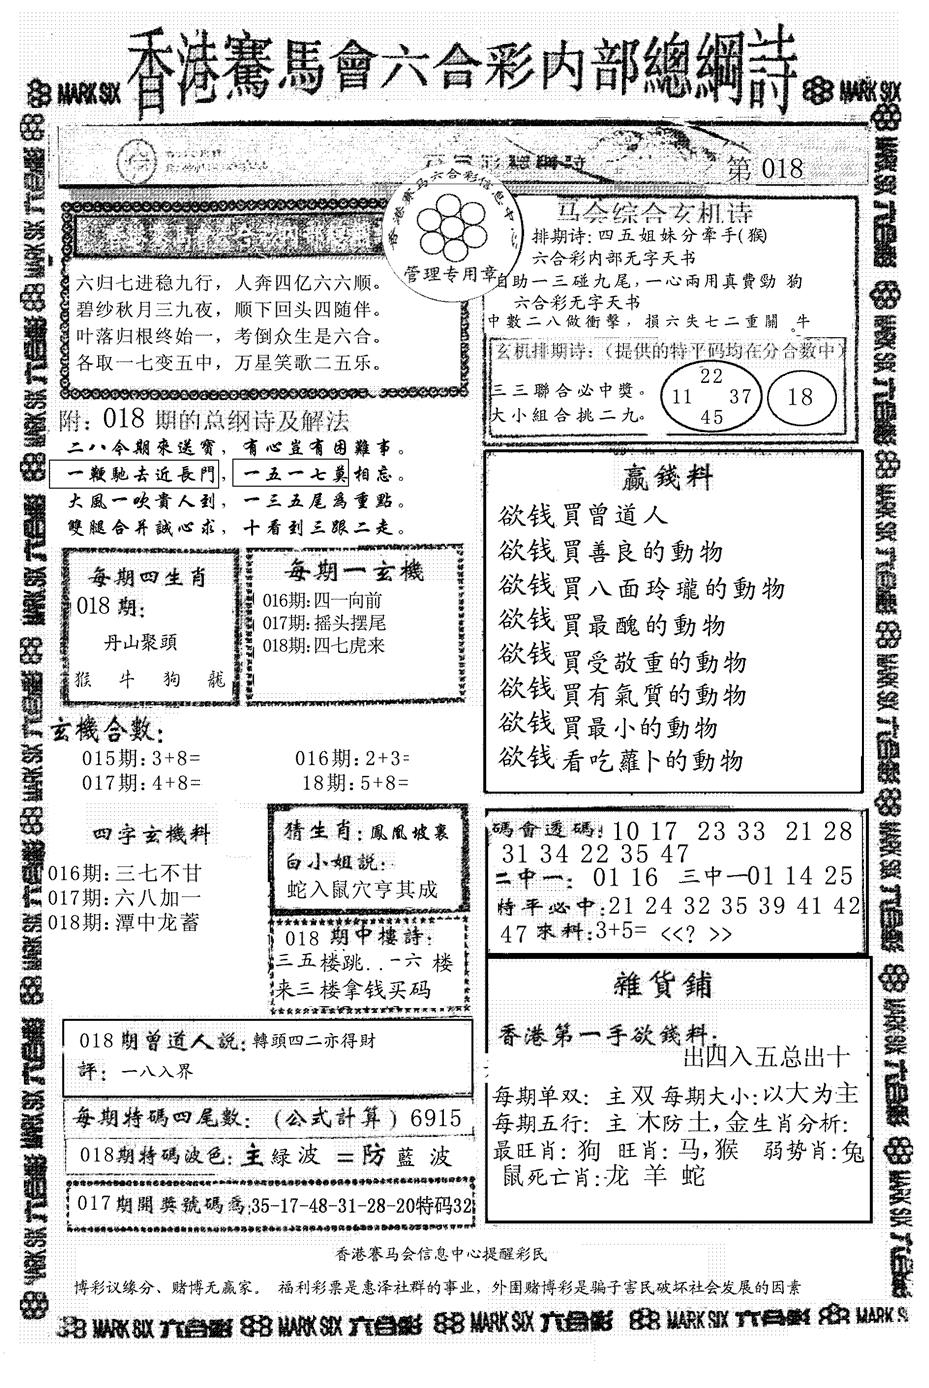 香港賽馬會六合彩内部總綱詩
MARK SIX
MARK SIX
第 018
香港赛马六合彩信息中
管理专用章
六归七进稳九行，人奔四亿六六顺。
碧纱秋月三九夜，顺下回头四随伴。
叶落归根终始一，考倒众生是六合。
各取一七变五中，万星笑歌二五乐。
马会综合玄机诗
排期诗:四五姐妹分牽手(猴)
六合彩内部无字天书
自助一三碰九尾,一心兩用真費勁 狗
六合彩无字天书
中數二八做衝擊，損六失七二重關。牛
玄机排期诗:（提供的特平码均在分合数中）
三三聯合必中獎。
大小組合挑二九。
22
11 37
45
18
附: 018 期的总纲诗及解法
二八今期來送寶，有心豈有困難事。
一鞭馳去近長門，一五一七莫相忘。
大風一吹貴人到，一三五尾爲重點。
雙腿合并誠心求，十看到三跟二走。
每期四生肖
018 期:
丹山聚頭
猴 牛 狗 龍
每期一玄機
016期:四一向前
017期:摇头摆尾
018期:四七虎来
赢錢料
欲钱買曾道人
欲钱買善良的動物
欲钱買八面玲瓏的動物
欲钱買最醜的動物
欲钱買受敬重的動物
欲钱買有氣質的動物
欲钱買最小的動物
欲钱看吃蘿卜的動物
玄機合數:
015期:3+8= 016期:2+3=
017期:4+8= 18期:5+8=
四字玄機料
016期:三七不甘
017期:六八加一
018期:潭中龙蓄
猜生肖:鳳凰坡裏
白小姐説:
蛇入鼠穴亨其成
018 期中樓詩:
三五楼跳..一六 楼
来三楼拿钱买码
碼會透碼: 10 17 23 33 21 28
31 34 22 35 47
二中一: 01 16 三中一01 14 25
特平必中:21 24 32 35 39 41 42
47 來料:3+5= <<? >>
雜貨鋪
香港第一手欲錢料:
出四入五总出十
每期单双: 主 双 每期大小:以大为主
每期五行: 主 木防土,金生肖分析:
最旺肖: 狗 旺肖: 马,猴 弱势肖:兔
鼠死亡肖:龙 羊 蛇
018 期曾道人説:轉頭四二亦得財
評: 一八入界
每期特碼四尾數: (公式計算) 6915
018期特碼波色:主 緑 波 =防 藍 波
017期開獎號碼爲:35-17-48-31-28-20特码32
香港賽马会信息中心提醒彩民
博彩议缘分、赌博无赢家。 福利彩票是惠泽社群的事业，外围赌博彩是骗子害民破坏社会发展的因素
MARK SIX 六合彩 MARK SIX 六合彩 MARK SIX 六合彩 MARK SIX 六合彩 MARK SIX